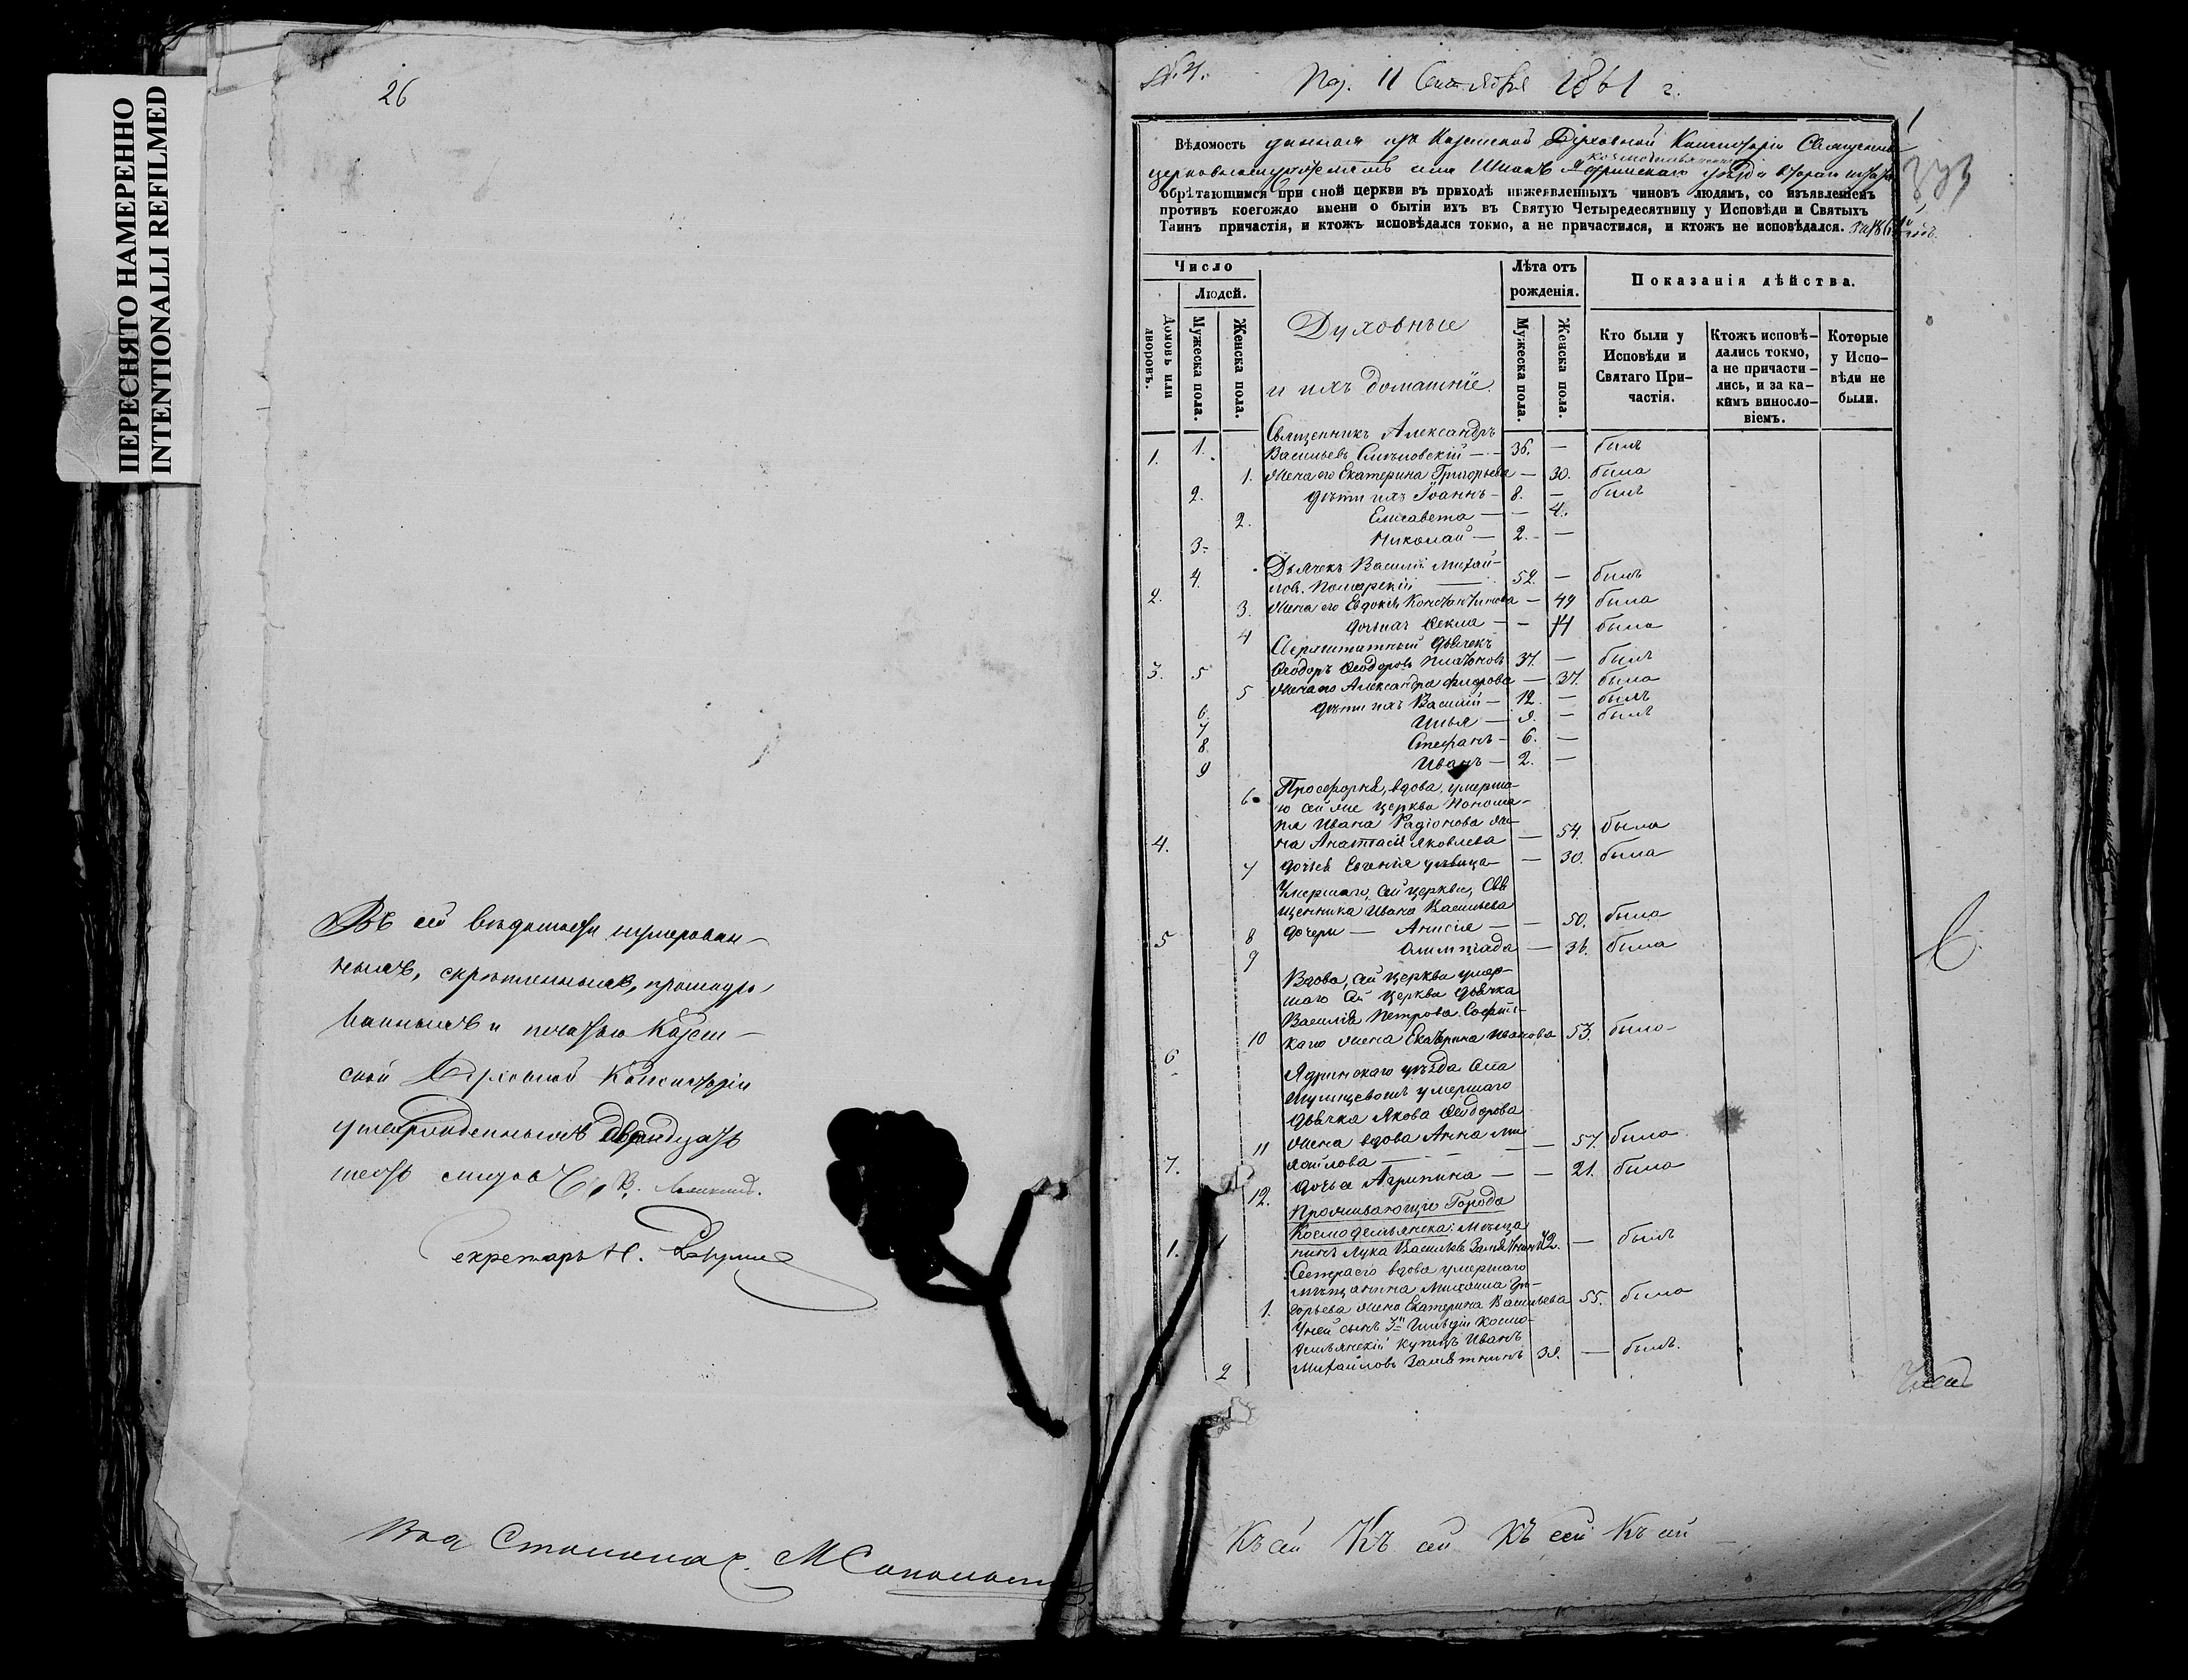 ПЕРЕСНЯТО НАМЕРЕННО
INTENTIONALLI REFILMED
26
Въ сей ведомости нумерован-
ныхъ, скрѣпленныхъ, прошнуро-
ванныхъ и печатью Казан-
ской Духовной Консисторіи
утвержденныхъ двадцать
шесть листовъ
Секретарь Н.
Вод Столонач.
№ 4.
Под. 11 Сентября 1861 г.
1
Вѣдомость данная изъ Казанской Духовной Консисторіи Священно-
Козмодемьянскаго
церковнослужителямъ села Ядринскаго уѣзда
обрѣтающимся при оной церкви въ приходѣ нижеявленныхъ чиновъ людямъ, со изъявленіемъ
противъ коегождо имени о бытіи ихъ въ Святую Четыредесятницу у Исповѣди и Святыхъ
Таинъ причастія, и ктожъ исповѣдался токмо, а не причастился, и ктожъ не исповѣдался. за 1861й годъ.
Число
Лѣта отъ рожденія.
Показанія дѣйства.
Людей.
Домовъ или дворовъ.
Мужеска пола.
Женска пола.
Духовные
и ихъ домашніе.
Мужеска пола.
Женска пола.
Кто были у Исповѣди и Святаго Причастія.
Ктожъ исповѣдались токмо, а не причастились, и за какимъ винословіемъ.
Которые у Исповѣди не были.
Священникъ Александръ
1. 1. Васильевъ — 36. — былъ
1. Жена его Екатерина Григорьева — 30. была
2. дѣти ихъ Іоаннъ — 8. — былъ
2. Елисавета — — 4.
3. Николай — 2. —
Дьячекъ Василій Михай-
2. 4. ловъ Помарскій — 52. — былъ
3. Жена его Евдокія Константинова — 49 была
4 дочь ихъ Ѳекла — — 14 была
Сверхштатный дьячекъ
3. 5 Ѳеодоръ Ѳеодоровъ Платоновъ 37. — былъ
5 Жена его Александра — 37. была
6. дѣти ихъ Василій — 12. — былъ
7 Илья — 9. — былъ
8. Стефанъ — 6. —
9 Иванъ — 2. —
6. Просфорня, вдова, умерша-
го сей же церкви Понома-
ря Ивана Радіонова же-
4. на Анастасія Яковлева — 54. была
7 дочь ея Евгенія дѣвица — — 30. была
Умершаго, сей церкви, Свя-
щенника Ивана Васильева
5 8 дочери — Анисія — — 50. была
9 Олимпіада — 36. была
Вдова, сей церкви умер-
шаго сей церкви дьячка
Василія Петрова Софій-
6 10 скаго жена Екатерина Иванова 53. была
Ядринскаго уѣзда села
умершаго
дьячка Якова Ѳеодорова
11 жена вдова Анна Ми-
7. хайлова — — 57. была
12. дочь ея Агрипина — — 21. была
Проживающіе Города
Космодемьянска: Мѣща-
1. 1 нинъ Лука Васильевъ Замятнинъ 42. — былъ
Сестра его вдова умершаго
мѣщанина Михаила Гри-
1. горьева жена Екатерина Васильева 55. была
У ней сынъ 3й Гильдіи Космо-
демьянскій купецъ Иванъ
2 Михайловъ Замятнинъ 39. — былъ.
Къ сей Къ сей Къ сей Къ сей